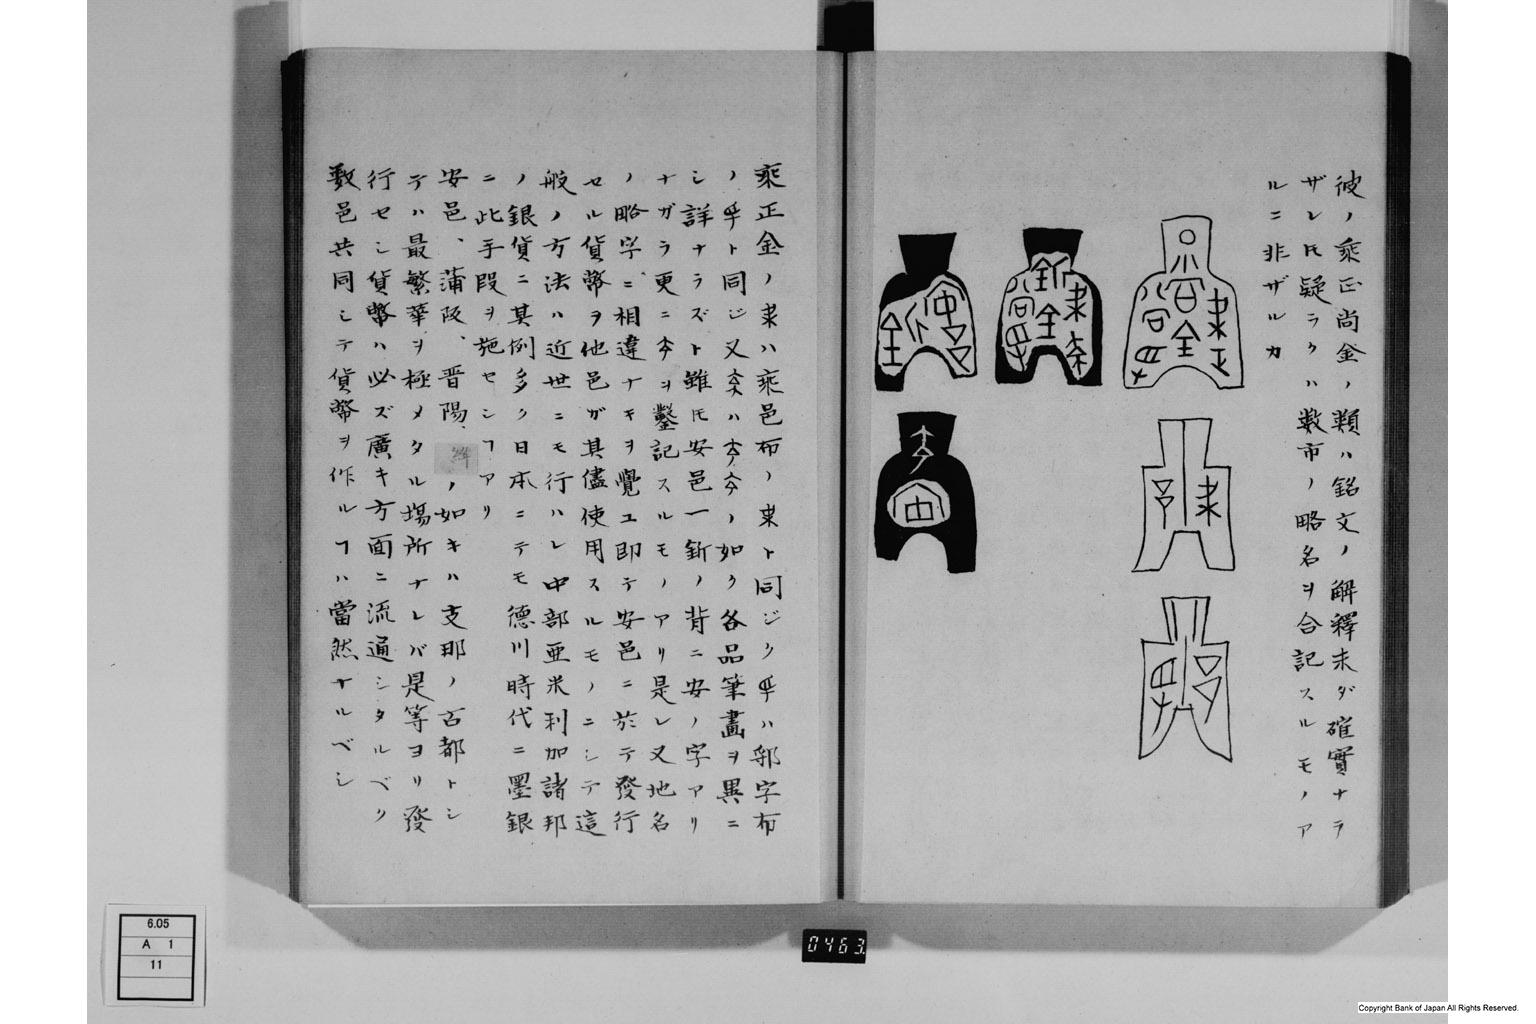 彼ノ乘正尚金ノ類ハ銘文ノ解釋未ダ確實ナラ
ザレ𪜈疑ラクハ数市ノ略名ヲ合記スルモノア
ルニ非ザルカ
乘正金ノ
ハ乘邑布ノ
ト同ジク
ハ
字布
ノ
ト同ジ又
ハ
ノ如ク各品筆畫ヲ異ニ
シ詳ナラズト雖𪜈安邑一釿ノ背ニ安ノ字アリ
ナガラ更ニ
ヲ鑿記スルモノアリ是レ又地名
ノ略字ニ相違ナキヲ覺ユ即テ安邑ニ於テ發行
セル貨幣ヲ他邑ガ其儘使用スルモノニシテ這
般ノ方法ハ近世ニモ行ハレ中部亜米利加諸邦
ノ銀貨ニ其例多ク日本ニテモ德川時代ニ墨銀
ニ此手段ヲ施セシヿアリ
安邑、蒲阪、晋陽、
絳
ノ如キハ支那ノ古都トシ
テハ最繁華ヲ極メタル塲所ナレバ是等ヨリ發
行セシ貨幣ハ必ズ廣キ方面ニ流通シタルベク
数邑共同シテ貨幣ヲ作ルヿハ當然ナルベシ
6.05
A 1
11
0463
Copyright Bank of Japan All Rights Reserved.